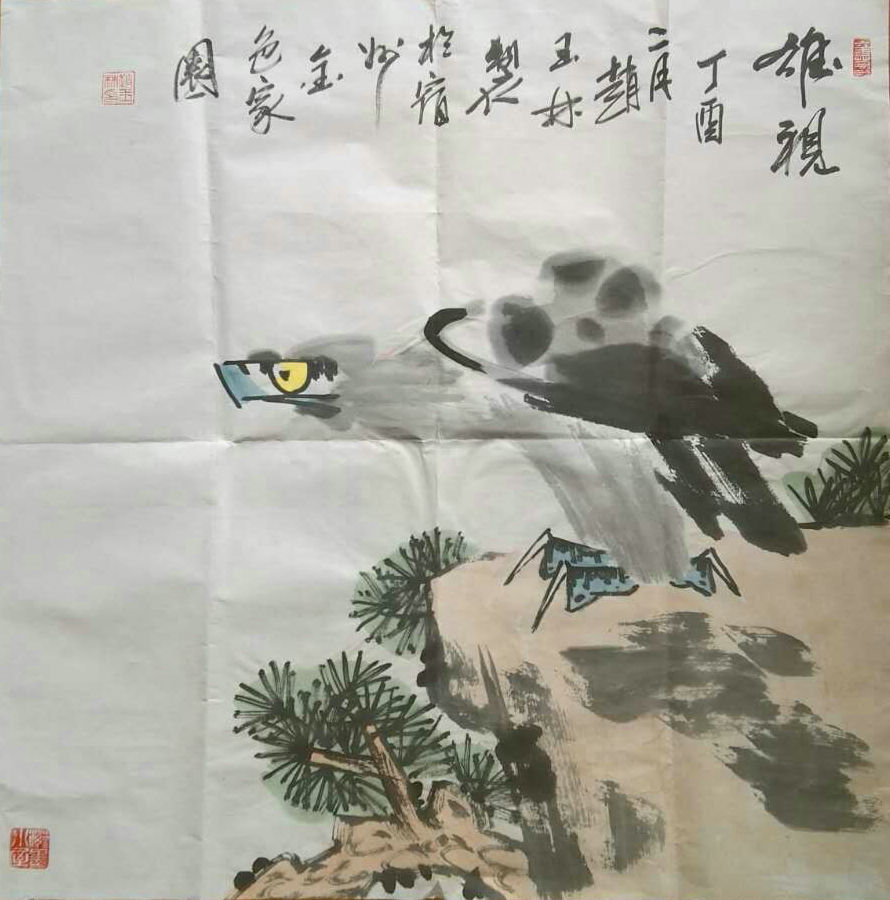 雄視
丁酉
二月
趙
玉林
製
於宿
州
金
色家
園